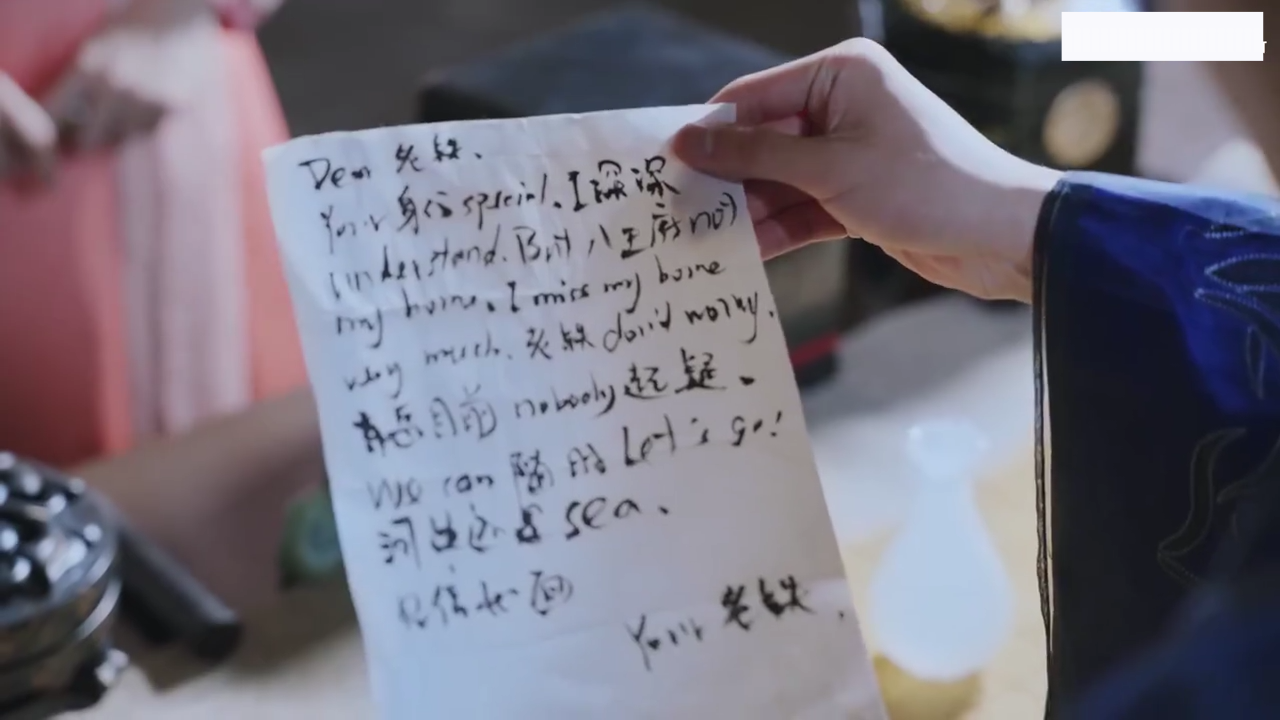 Dear 老铁、
Your 身份 special. I 深深
understand. But 八王府 not
my home. I miss my home
very much. 老铁 don't worry.
目前 nobody 起疑.
We can 随时 Let's go!
河边还是 sea.
见信如面
Your 老铁.